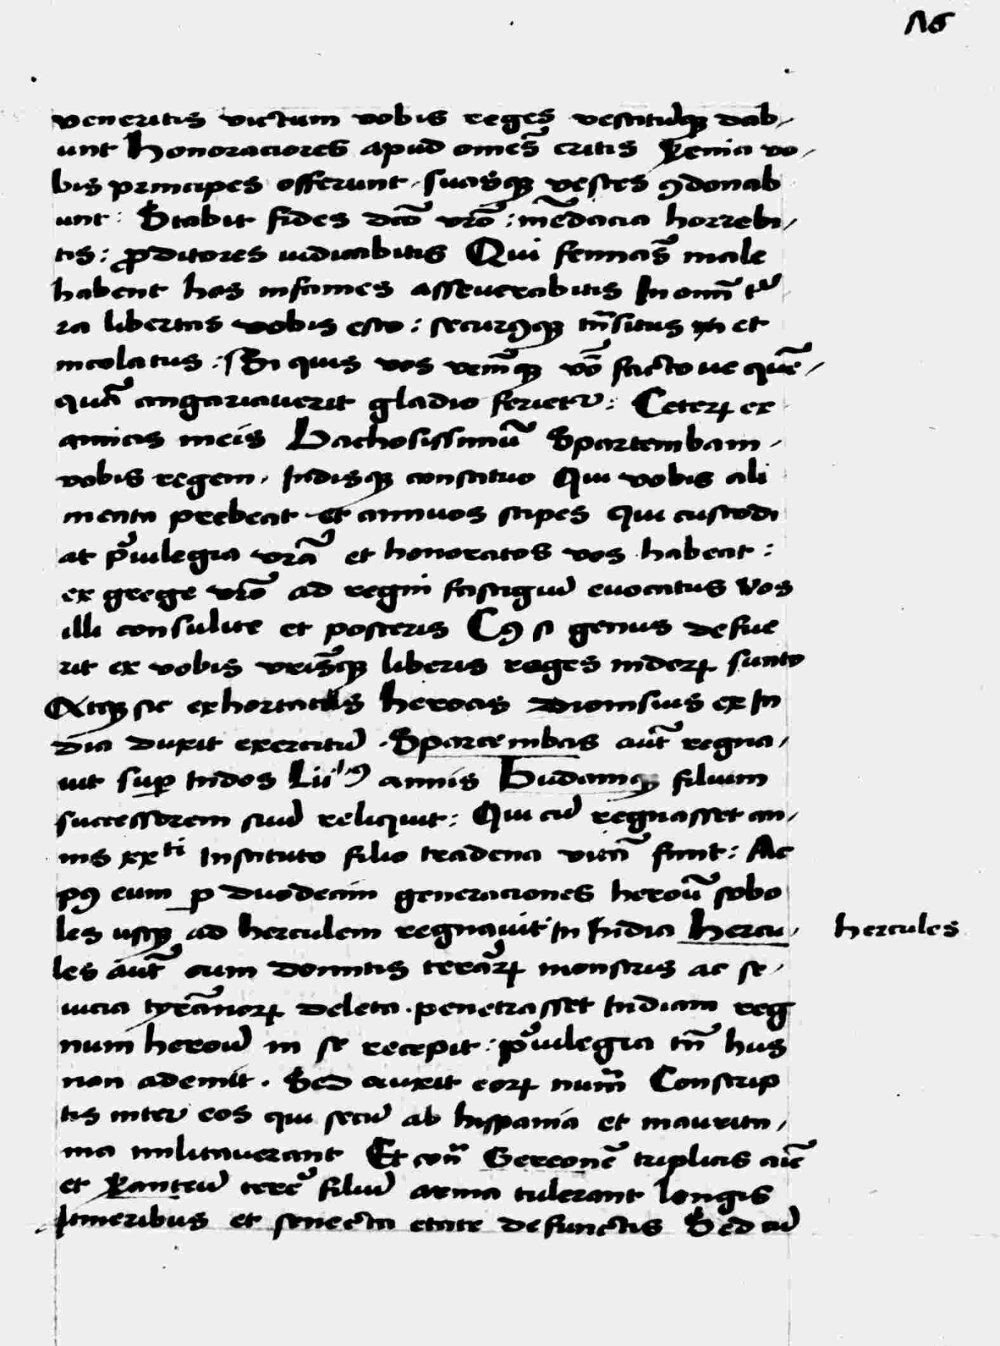 veneritis victum vobis reges vestitūq; dab-
unt Honoraciores apud omēs eritis Xenia vo-
bis principes offerunt. suasq; vestes ꝯdonab
unt: Stabit fides dc̄o vr̄o: mēdacia horrebi-
tis: ꝓditores iudicabitis Qui femnas male
habent hos infames asseverabitis In omī
ra libertas vobis esto: securꝰq; tn̄situs et
incolatus: Si quis vos facto ve quē-
quā angariaverit gladio ferietr̄: Ceterꝝ ex
amicis meis Bachosissimū Spartembam
vobis regem. Indisq; constituo Qui vobis ali
menta prebeat et annuos stipes qui custodi
at pͥuilegia vr̄a et honoratos vos habeat:
ex grege vr̄o ad regni fastigiū evocatus Vos
illi consulite et posteris Cꝰ si genus defue
rit ex vobis vr̄isq; liberis reges inderꝝ sunto
Atq; sic exhortatus heroas Dionisius ex In
dia duxit exercitū. Spartembas aut̄ regna-
vit suꝑ Indos Lii annis Budamq; filium
successorem suū reliquit: Qui cū regnasset an-
nis xxti Instituto filio tradena vitā finit: Ac
pꝰ eum ꝑ duodecim generaciones heroū sobo
les usq; ad herculem regnavit In India hercu-
hercules
les aut̄ cum domitis terrarꝝ monstris ac se-
vicia tyrānorꝝ deleta. penetrasset Indiam reg
num heroū in se recepit: pͥuilegia tn̄ hiis
non ademit. Sed auxit eorꝝ numꝝ Conscrip
tis inter eos qui secū ab hispania et maurita-
nia militaverant Et con̄ Gereonē triplicis aīe
et Xanteū terre filiū arma tulerant longis
Itineribus et senecta etate defunctis Sed cū